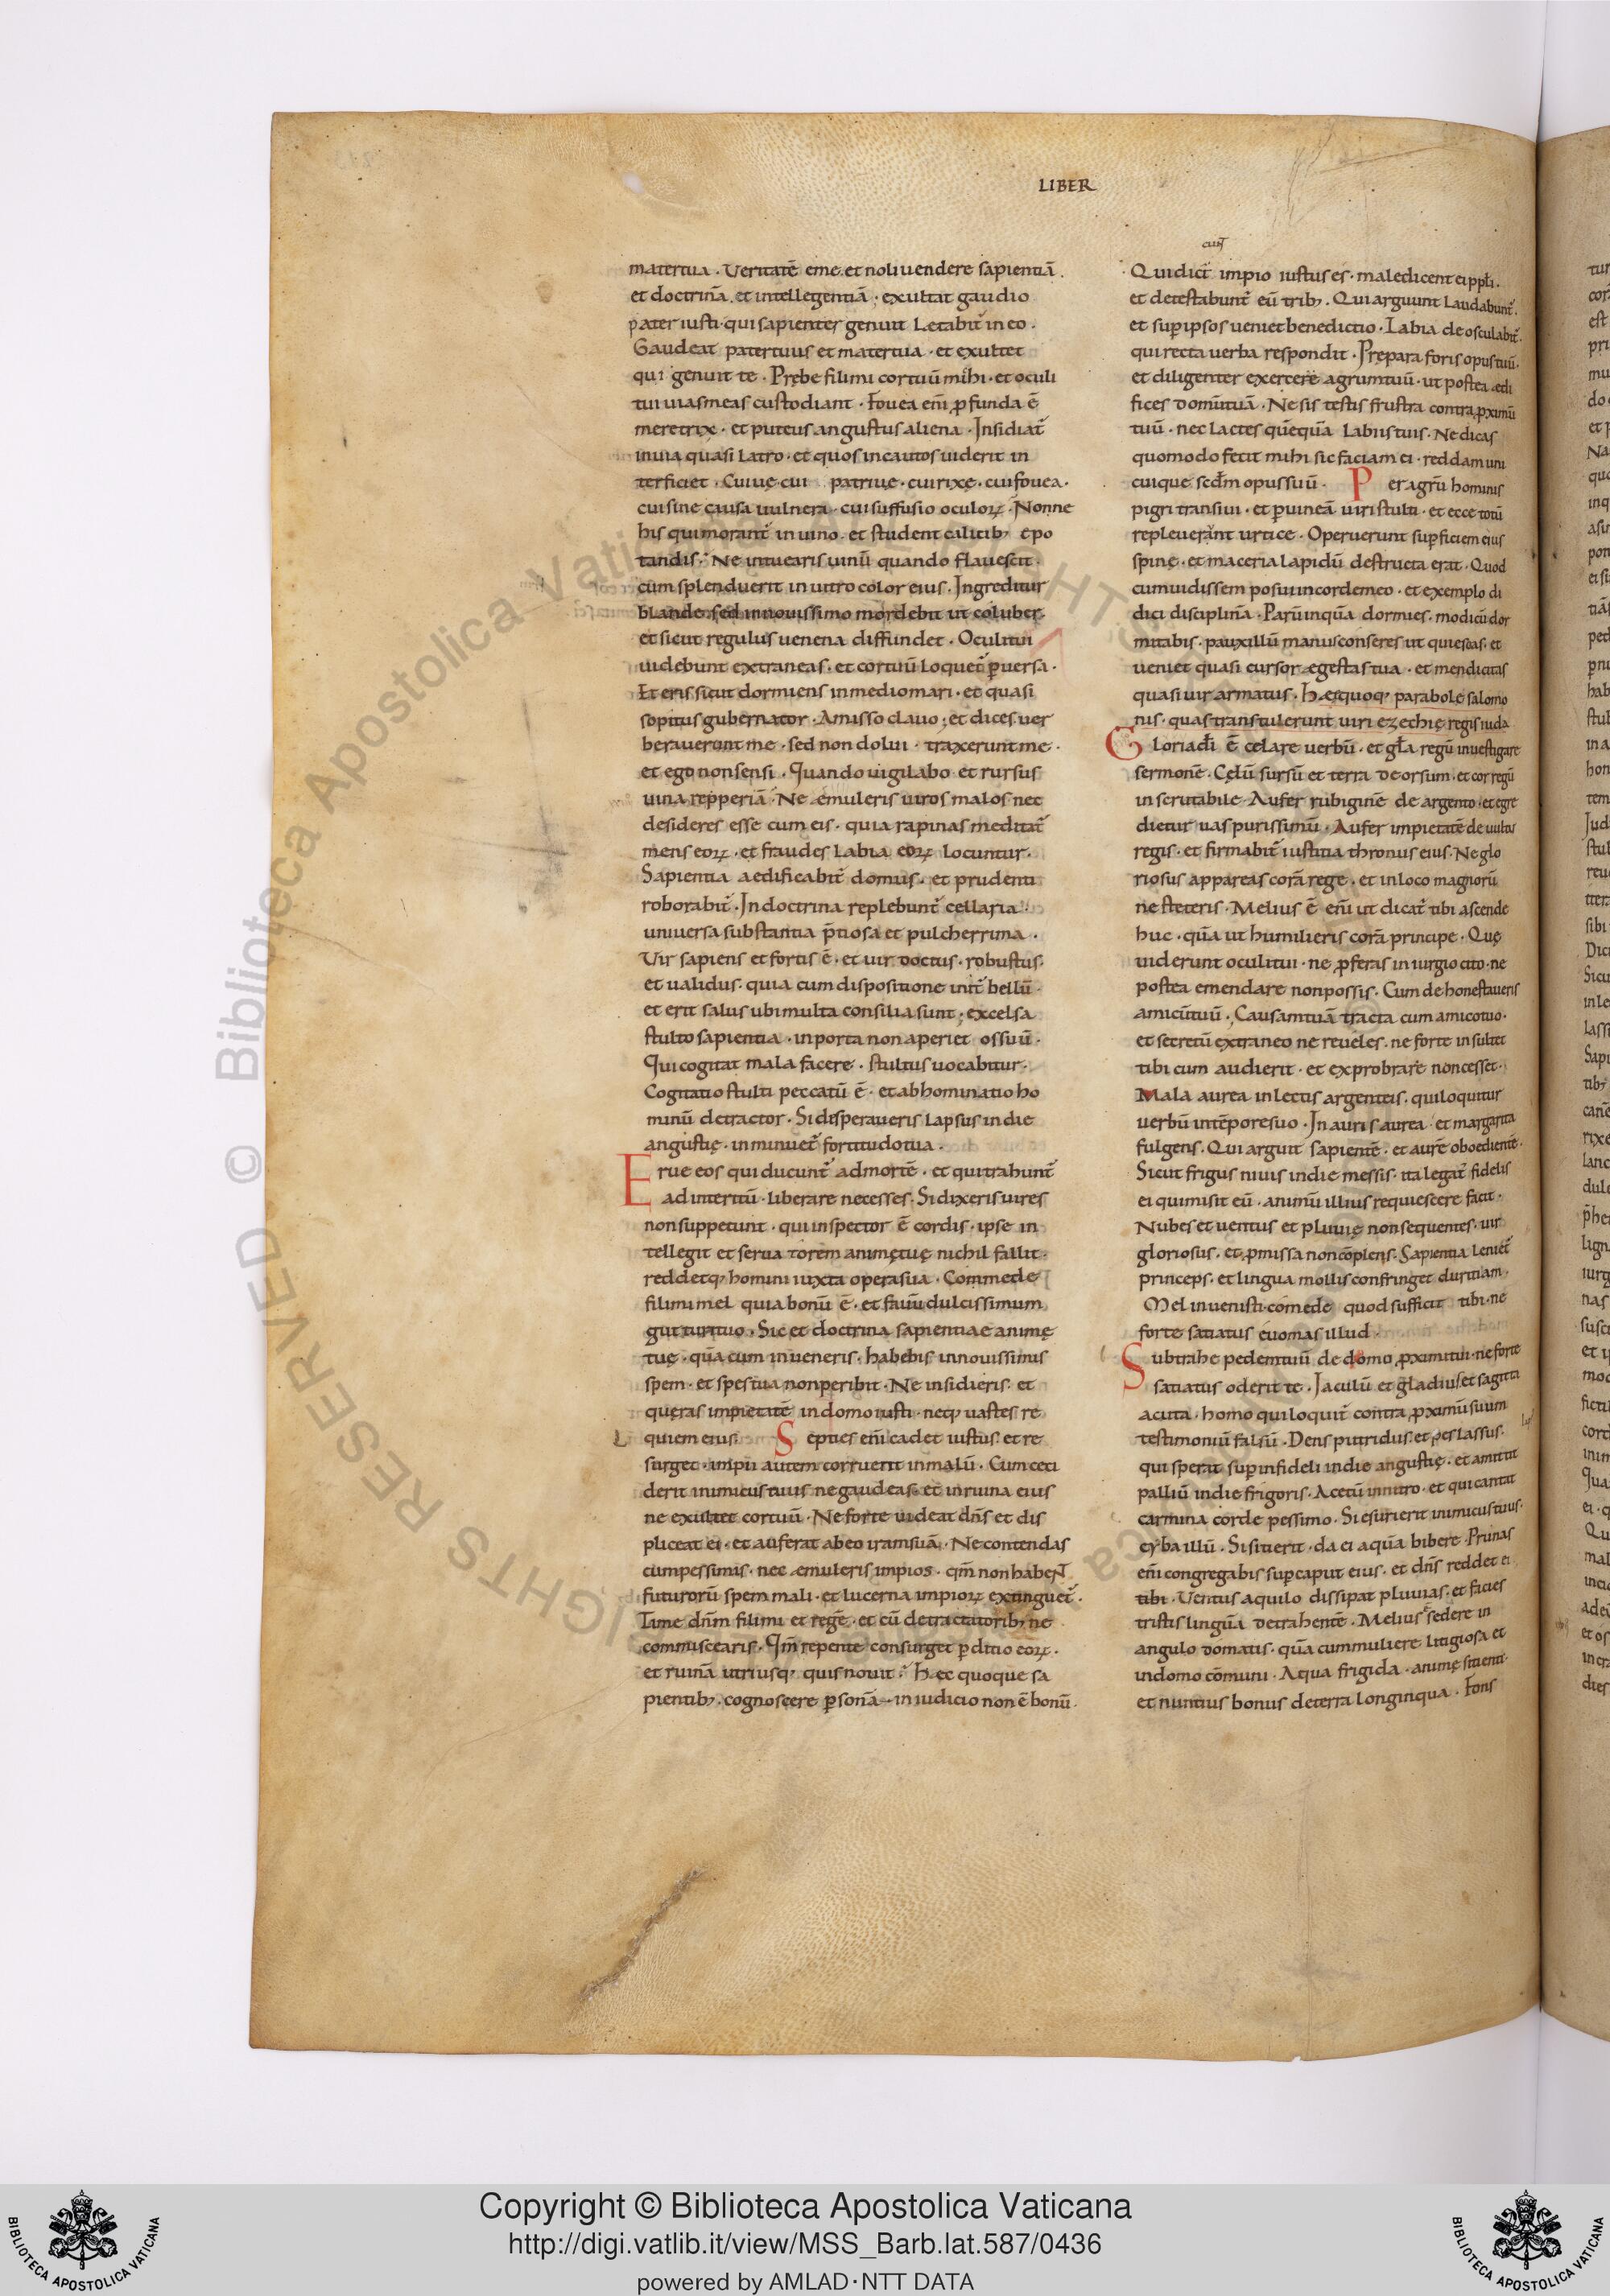 LIBER
mater tua · Veritatē eme · et noli vendere sapientiā ·
et doctrinā · et intellegentiā · exultat gaudio
pater iusti · qui sapienter genuit Letabit̄ in eo ·
Gaudeat pater tuus et mater tua · et exultet
qui genuit te · Prębe fili mi cor tuū mihi · et oculi
tui uias meas custodiant · Fouea eni̅ ꝓfunda ē
meretrix · et puteus angustus aliena · Insidiat̄
in uia quasi latro · et quos incautos uiderit in
terficiet · Cui uę cui patri uę · cui rixę · cui fouea ·
cui sine causa uulnera · cui suffusio oculoꝝ · Nonne
his qui morant̄ in uino · et student calicib; epo
tandis · Ne intuearis uinū quando flauescit ·
cum splenduerit in uitro color eius · Ingreditur
blande · sed in nouissimo mordebit ut coluber ·
et sicut regulus uenena diffundet · Oculi tui
uidebunt extraneas · et cor tuū loquet̄ ꝑuersa ·
Et eris sicut dormiens in medio mari · et quasi
sopitus gubernator · Amisso clauo · et dices uer
berauerunt me · sed non dolui · traxerunt me ·
et ego non sensi · Quando uigilabo et rursus
uina repperiā · Ne æmuleris uiros malos nec
desideres esse cum eis · quia rapinas meditat̄
mens eoꝝ · et fraudes labia eoꝝ locuntur ·
Sapientia aedificabit̄ domus · et prudenti
roborabit̄ · In doctrina replebunt̄ cellaria
uniuersa substantia p̄tiosa et pulcherrima ·
Vir sapiens et fortis ē · et uir doctus · robustus
et ualidus · quia cum dispositione init̄ bellū ·
et erit salus ubi multa consilia sunt · excelsa
stulto sapientia · in porta non aperiet os suū ·
Qui cogitat mala facere · stultus uocabitur ·
Cogitatio stulti peccatū ē · et abhominatio ho
minū detractor · Si disperaueris lapsus in die
angustię · in minuet̄ fortitudo tua ·
Erue eos qui ducunt̄ ad mortē · et qui trahunt̄
ad interitū · liberare ne cesses · Si dixeris uires
non suppetunt · qui inspector ē cordis · ipse in
tellegit et seruatorem animę tuę nichil fallit ·
reddetq; homini iuxta opera sua · Commede
fili mi mel quia bonū ē · et fauū dulcissimum
gutturi tuo · Sic et doctrina sapientiae animę
tuę · quā cum inueneris · habebis in nouissimis
spem · et spes tua non peribit · Ne insidieris et
queras impietatē in domo iusti · neq; uastes re
quiem eius · Septies eni̅ cadet iustus · et re
surget · impii autem corruent in malū · Cum ceci
derit inimicus tuus ne gaudeas · et in ruina eius
ne exultet cor tuū · Ne forte uideat dn̄s et dis
pliceat ei · et auferat ab eo iram suā · Ne contendas
cum pessimis · nec æmuleris impios · qm̄ non habent
futurorū spem mali · et lucerna impioꝝ extinguet̄ ·
Time dn̄m fili mi et regē · et cū detractatorib; ne
commiscearis · Qm̄ repente consurget ꝑditio eoꝝ ·
et ruinā utriusq; quis nouit · Hæc quoque sa
pientib; · cognoscere ꝑsonā in iudicio non ē bonū ·
Qui dicit impio iustus es · maledicent ei ppl̄i ·
et detestabunt̄ eū trib; · Qui arguunt laudabunt̄ ·
et suꝑ ipsos ueniet benedictio · Labia deosculabit̄ ·
qui recta uerba respondit · Prepara foris opus tuū ·
et diligenter exercere agrum tuū · ut postea ędi
fices domū tuā · Ne sis testis frustra contra ꝓximū
tuū · nec lactes quēquā labiis tuis · Ne dicas
quomodo fecit mihi sic faciam ei · reddam uni
cuique scd̄m opus suū · Per agrū hominis
pigri transiui · et ꝑ uineā uiri stulti · et ecce totū
repleuerant urtice · Operuerunt suꝑficiem eius
spinę · et maceria lapidū destructa erat · Quod
cum uidissem posui in corde meo · et exemplo di
dici disciplinā · Parū inquā dormies · modicū dor
mitabis · pauxillū manus conseres ut quiescas · et
ueniet quasi cursor ægestas tua · et mendicitas
quasi uir armatus · Hæ quoq; parabolę salomo
nis · quas transtulerunt uiri ezechię regis iuda
Gloria dī ē celare uerbū · et gl̄a regū inuestigare
sermonē · Cęlū sursū et terra deorsum · et cor regū
inscrutabile · Aufer rubiginē de argento · et egre
dietur uas purissimū · Aufer impietatē de uultu
regis · et firmabit̄ iustitia thronus eius · Ne glo
riosus appareas corā rege · et in loco magnorū
ne steteris · Melius ē eni̅ ut dicat̄ tibi ascende
huc · quā ut humilieris corā principe · Quę
uiderunt oculi tui · ne ꝓferas in iurgio cito · ne
postea emendare non possis · Cum dehonestaueris
amicū tuū · Causam tuā tracta cum amico tuo ·
et secretū extraneo ne reueles · ne forte insultet
tibi cum audierit · et exprobrare non cesset ·
Mala aurea in lectis argenteis · qui loquitur
uerbū in tēpore suo · Inauris aurea · et margarita
fulgens · Qui arguit sapientē · et aurē oboedientē ·
Sicut frigus niuis in die messis · ita legat̄ fidelis
ei qui misit eū · animū illius requiescere facit ·
Nubes et uentus et pluuię non sequentes · uir
gloriosus · et ꝓmissa non cōplens · Sapientia leniet̄
princeps · et lingua mollis confringet duritiam ·
Mel inuenisti comede quod sufficit tibi · ne
forte satiatus euomas illud ·
Subtrahe pedem tuū de domo ꝓximi tui · ne forte
satiatus oderit te · Iaculū et gladius et sagitta
acuta · homo qui loquit̄ contra ꝓximū suum
testimoniū falsū · Dens putridus · et pes lassus ·
qui sperat suꝑ infideli in die angustię · et amittit
palliū in die frigoris · Acetū in nitro · et qui cantat
carmina corde pessimo · Si esurierit inimicus tuus ·
cyba illū · Si sitierit · da ei aquā bibere · Prunas
eni̅ congregabis suꝑ caput eius · et dn̄s reddet ei
tibi · Ventus aquilo dissipat pluuias · et facies
tristis linguā detrahentē · Melius sedere in
angulo domatis · quā cum muliere litigiosa et
in domo cōmuni · Aqua frigida · animę sitienti
et nuntius bonus de terra longinqua · Fons
Copyright © Biblioteca Apostolica Vaticana
http://digi.vatlib.it/view/MSS_Barb.lat.587/0436
powered by AMLAD·NTT DATA